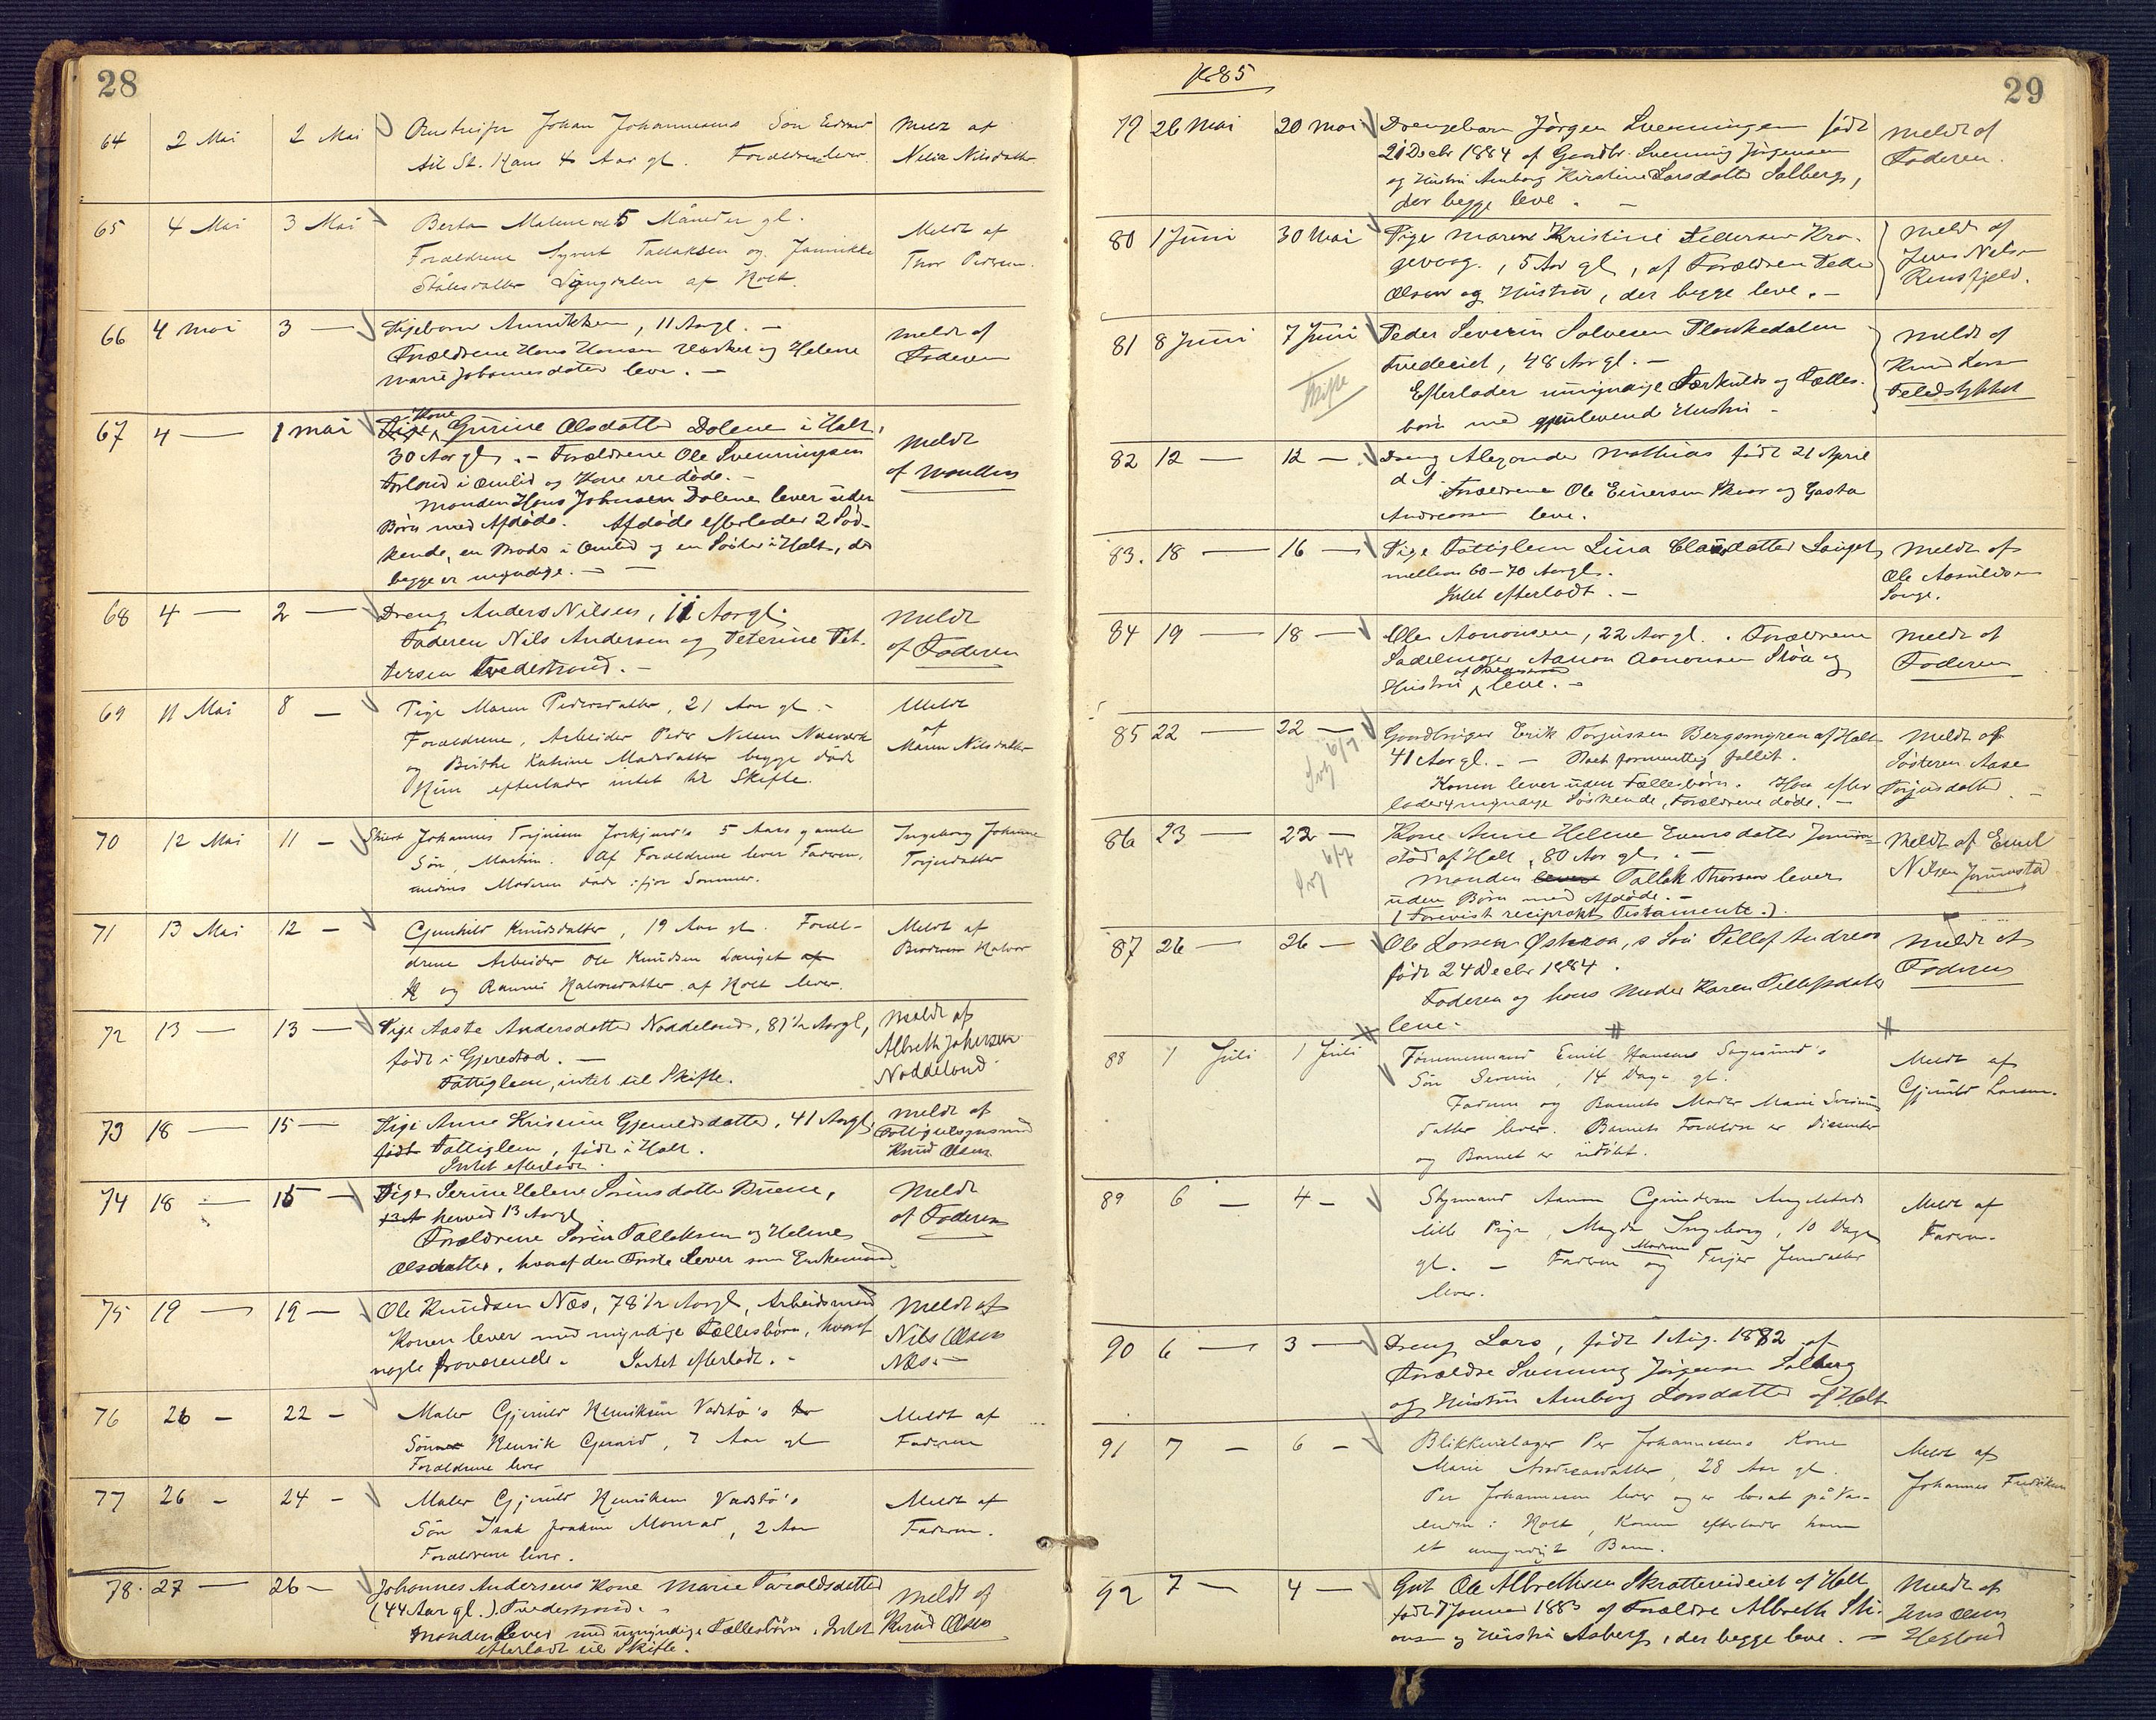 28
64 2 Mai 2 Mai Johan Johannesens Søn Edvard Meldt af
til St. Hans 4 Aar gl. Forældrene lever. Nilsdatter
65 4 Mai 3 Mai Berta Malene 5 Måneder gl. Meldt af
Forældrene Syvert Tallaksen og Jannikke Thor Pedersen.
Ståles­datter af Holt.
66 4 Mai 3 — Pigebarn Annikken, 11 Aar gl. — Meldt af
Forældrene Hans Hansen og Helene Faderen
Marie Johannesdatter leve. —
67 4 — 1 Mai Pige Kone Gurine Olsdatter Dolene i Holt, Meldt
30 Aar gl. — Forældrene Ole Svenningsen af Manden
i Omlid og Kone ere døde. —
Manden Hans Johnsen Dolene lever uden
Børn med Afdøde. Afdøde efterlader 2 Sød-
kende, en Broder i Omlid og en Søster i Holt, der
begge er myndige. —
68 4 — 2 — Dreng Anders Nilsen, 11 Aar gl. Meldt
Faderen Nils Andersen og Peterine Pet- af Faderen
tersen Tvedestrand. —
69 11 Mai 8 — Pige Maren Pedersdatter, 21 Aar gl. — Meldt
Forældrene, Arbeider Peder Nilsen Næsværk af
og Birthe Katrine Madsdatter begge døde Maren Nilsdatter
Hun efterlader intet til Skifte.
70 12 Mai 11 — Johannes Torjusen 5 Aars gamle Ingeborg Johanne
Søn, Martin. Af Forældrene lever Faderen, Torjusdatter
medens Moderen døde ifjor Sommer.
71 13 Mai 12 — Gunhild Knudsdatter, 19 Aar gl. Foræl- Meldt af
drene Arbeider Ole Knudsen Langet af Broderen Halvor
H og Halvorsdatter af Holt lever.
72 13 — 13 — Pige Aaste Andersdatter Noddeland, 81 1/2 Aar gl, Meldt af
født i Gjerestad. — Albreth Johnsen
Fattiglem, intet til Skifte. Noddeland
73 18 — 15 — Pige Anne Kristine Gjermundsdatter, 41 Aar gl, Meldt af
født Fattiglem, født i Holt. Knud Olsen
Intet efterladt.
74 18 — 15 — Pige Serine Helene Sørensdatter Buene, Meldt
13 A henved 13 Aar gl. af Faderen
Forældrene Søren Tallaksen og Helene
Olsdatter, hvoraf den Første lever som Enkemand.
75 19 — 19 — Ole Knudsen Næs, 78 1/2 Aar gl, Arbeidsmand Meldt af
Konen lever med myndige Fællesbørn, hvoraf Nils Olsen
nogle fraværende. Intet efterladt. — Næs. —
76 26 — 22 — Maler Gjeruld Henriksen Vadstø's to Meldt af
Sønner Henrik Gerard, 7 Aar gl Faderen
Forældrene lever
77 26 — 24 — Maler Gjeruld Henriksen Vadstø's Meldt af
Søn Isak Joakim Monrad, 2 Aar Faderen.
Forældrene lever.
78. 27 — 26 — Johannes Andersens Kone Marie Taraldsdatter Meldt af
(44 Aar gl.) Tvedestrand. Knud Olsen
Manden lever med umyndige Fællesbørn. Intet
efterladt til Skifte.
1885
29
79 26 Mai 20 Mai Drengebarn Jørgen Svenningsen født Meldt af
21 Decbr 1884 af Gaardbr. Svenning Jørgensen Faderen.
og Hustru Amborg Kirstine Larsdatter Solberg,
der begge leve. —
80 1 Juni 30 Mai Pige Maren Kristine Pedersen Kra- Meldt af
gevaag, 5 Aar gl, af Forældrene Peder Jens Nilsen
Olsen og Hustru, der begge leve. —
81 8 Juni 7 Juni Peder Severin Salvesen Plankedalen Meldt af
Tvedeeiet, 48 Aar gl. — Knud Larsen
Skifte Efterlader umyndige Særkulds og Fælles- Feldstykket
børn med gjenlevende Hustru —
82 12 — 12 — Dreng Alexander Mathias født 21 April
d. A. Forældrene Ole Einersen og
Andreassen leve.
83. 18 — 16 — Pige Fattiglem Lina Clausdatter Langet, Meldt af
mellem 60–70 Aar gl. Ole
Intet efterladt. — Songe.
84 19 — 18 — Ole Aanonsen, 22 Aar gl. Forældrene Meldt af
Sadelmager Aanon Aanonsen og Faderen
Hustru leve. —
85 22 — 22 — Gaardbruger Erik Torjussen Bergsmyren af Holt Meldt af
6/7 41 Aar gl. — formentlig fallit. Søsteren Aase
Konen lever uden Fællesbørn. Han efter Torjusdatter
lader myndige Søskende, Forældrene døde. —
86 23 — 22 — Kone Anne Helene Evensdatter Meldt af Emil
6/7 af Holt, 80 Aar gl. — Nilsen
Manden lever Tallak Thorsen lever
uden Børn med Afdøde. —
(Forevist reciprokt Testamente.)
87 26 — 26 — Ole Larsen Østeraa, s Søn Tellef Andreas Meldt af
født 24 Decbr 1884. Faderen
Faderen og hans Moder Karen Tellefsdatter
leve.
88 1 Juli 1 Juli Tømmermand Emil Hansens Sagesund's Meldt af
Søn Severin, 14 Dage gl. Gjeruld Larsen.
Faderen og Barnets Moder Marie
datter lever. Barnets Forældre er Dissenter
og Barnet er udøbt.
89 6 — 4 — Styrmand Aanon Gundersen Angelstads Meldt af
lille Pige, Magda Ingeborg, 10 Dage Faderen.
gl. — Faderen og Moderen Jensdatter
lever.
90 6 — 3 — Dreng Lars, født 1 Aug. 1882 af
Forældre Svenning Jørgensen Solberg
og Hustru Amborg Larsdatter af Holt
91 7 — 6 — Blikkenslager Per Johannesens Kone Meldt af
Marie Andreasdatter, 28 Aar gl. Johannes Fredriksen
Per Johannesen lever og er bosat på
i Holt, Konen efterlader ham
et umyndigt Barn.
92 7 — 4 — Gut Ole Albrethsen Skrattereideiet af Holt Meldt af
født 7 Januar 1883 af Forældre Albreth Jens Olsen
og Hustru Asberg, der begge leve. — Heglond